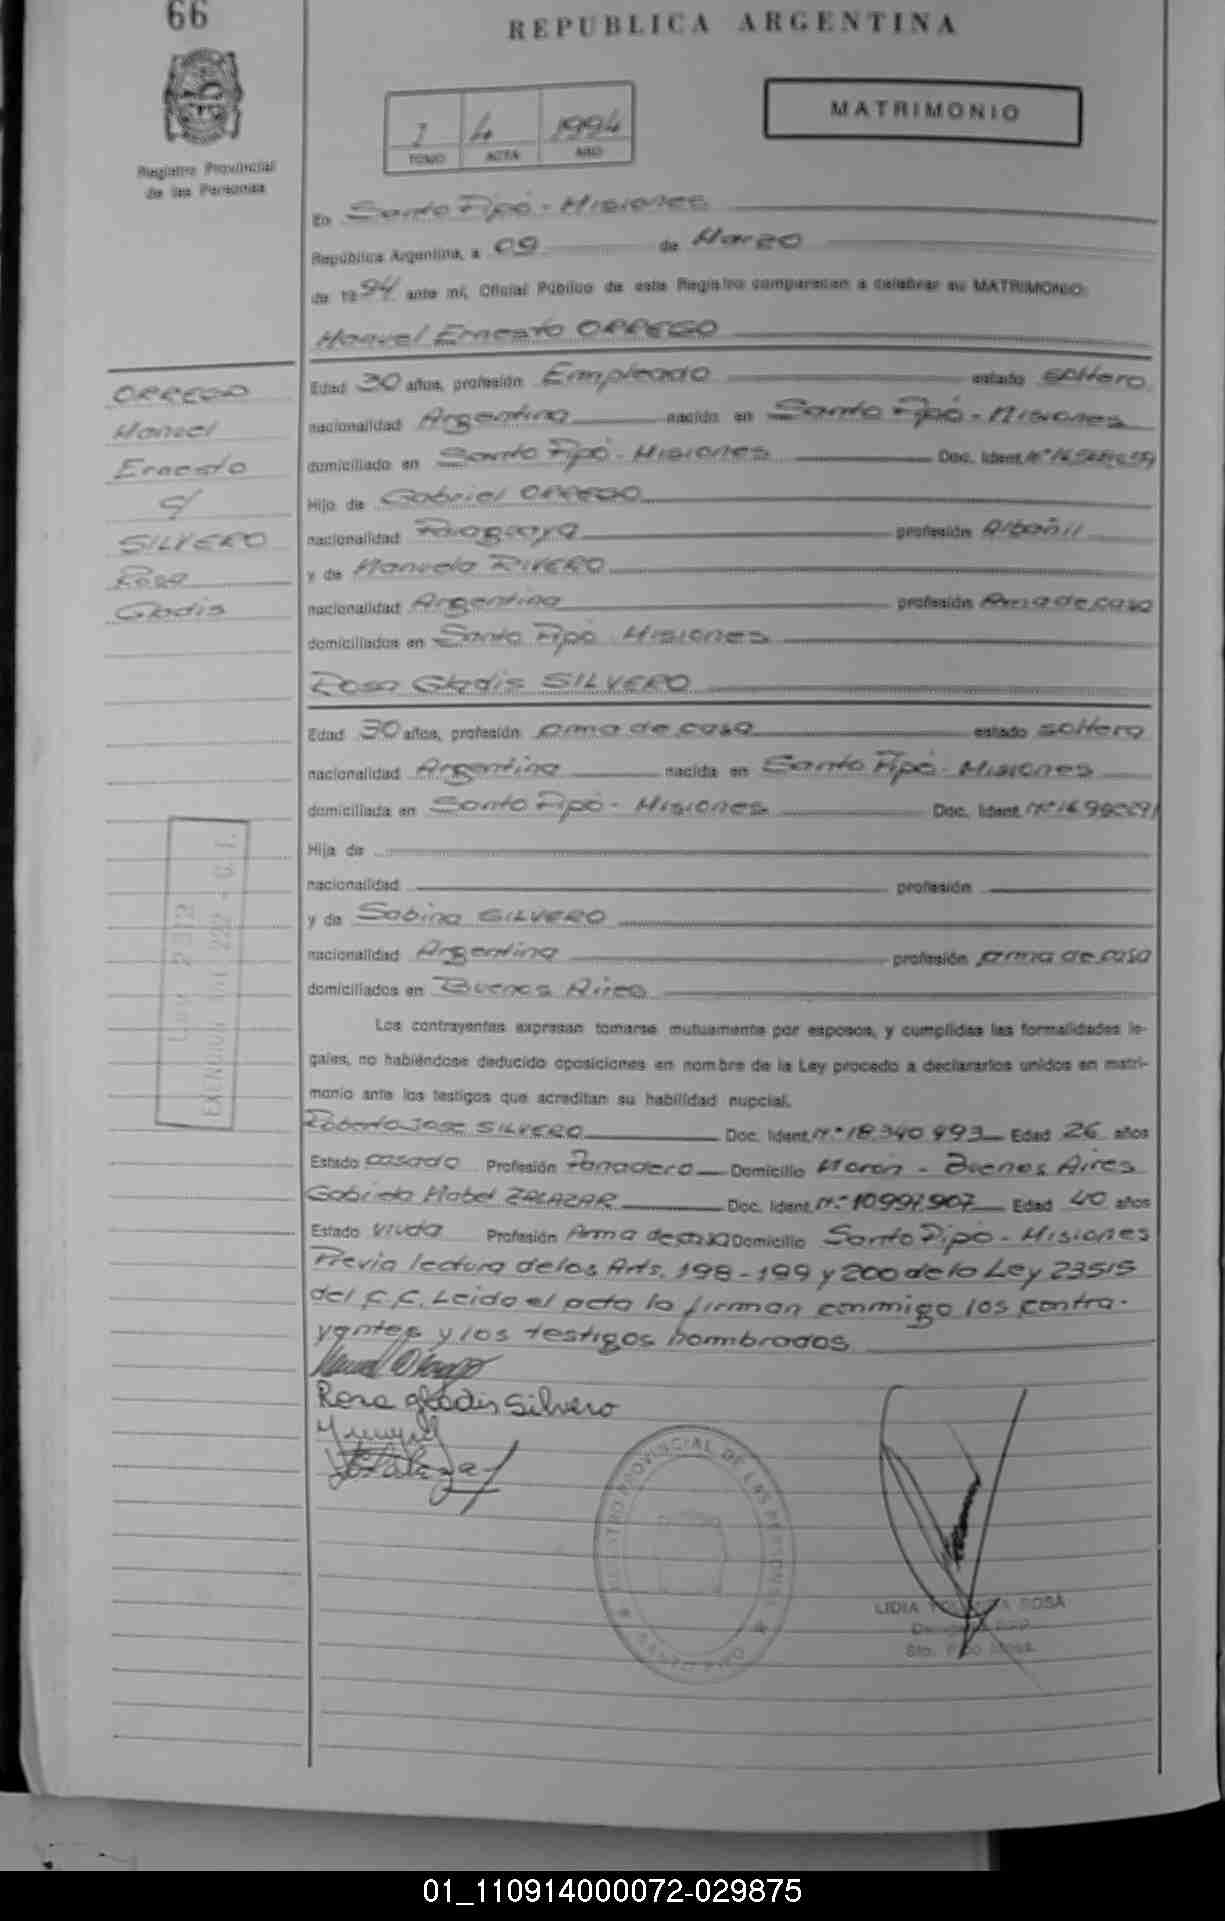 66
REPUBLICA ARGENTINA
Registro Provincial
de las Personas
1 4 1994
TOMO ACTA AÑO
MATRIMONIO
En Santo Pipó - Misiones
República Argentina, a 09 de Marzo
de 1994 ante mí, Oficial Público de este Registro comparecen a celebrar su MATRIMONIO:
Manuel Ernesto ORREGO
ORREGO
Manuel
Ernesto
c/
SILVERO
Rosa
Gladis
Edad 30 años, profesión Empleado estado soltero
nacionalidad Argentina nacido en Santo Pipó - Misiones
domiciliado en Santo Pipó - Misiones Doc. Ident. Nº
Hijo de Gabriel ORREGO
nacionalidad Paraguaya profesión Albañil
y de Manuela RIVERO
nacionalidad Argentina profesión Ama de casa
domiciliados en Santo Pipó Misiones
Rosa Gladis SILVERO
Edad 30 años, profesión ama de casa estado soltera
nacionalidad Argentina nacida en Santo Pipó - Misiones
domiciliada en Santo Pipó - Misiones Doc. Ident. Nº
Hija de
nacionalidad profesión
y de Sabina SILVERO
nacionalidad Argentina profesión ama de casa
domiciliados en Buenos Aires
Los contrayentes expresan tomarse mutuamente por esposos, y cumplidas las formalidades le-
gales, no habiéndose deducido oposiciones en nombre de la Ley procedo a declararlos unidos en matri-
monio ante los testigos que acreditan su habilidad nupcial.
Roberto Jose SILVERO Doc. Ident. Nº 18.340.993 Edad 26 años
Estado casado Profesión Panadero Domicilio Morón - Buenos Aires
Gabriela Mabel ZALAZAR Doc. Ident. Nº 10.997.907 Edad 40 años
Estado viuda Profesión Ama de casa Domicilio Santo Pipó - Misiones
Previa lectura de los Arts. 198 - 199 y 200 de la Ley 23515
del C.C. Leido el acta la firman conmigo los contra-
yentes y los testigos nombrados
Manuel Orrego
Rosa gladis Silvero
REGISTRO PROVINCIAL DE LAS PERSONAS
SANTO PIPO
LIDIA ROSA
Sto. Pipó
01_110914000072-029875